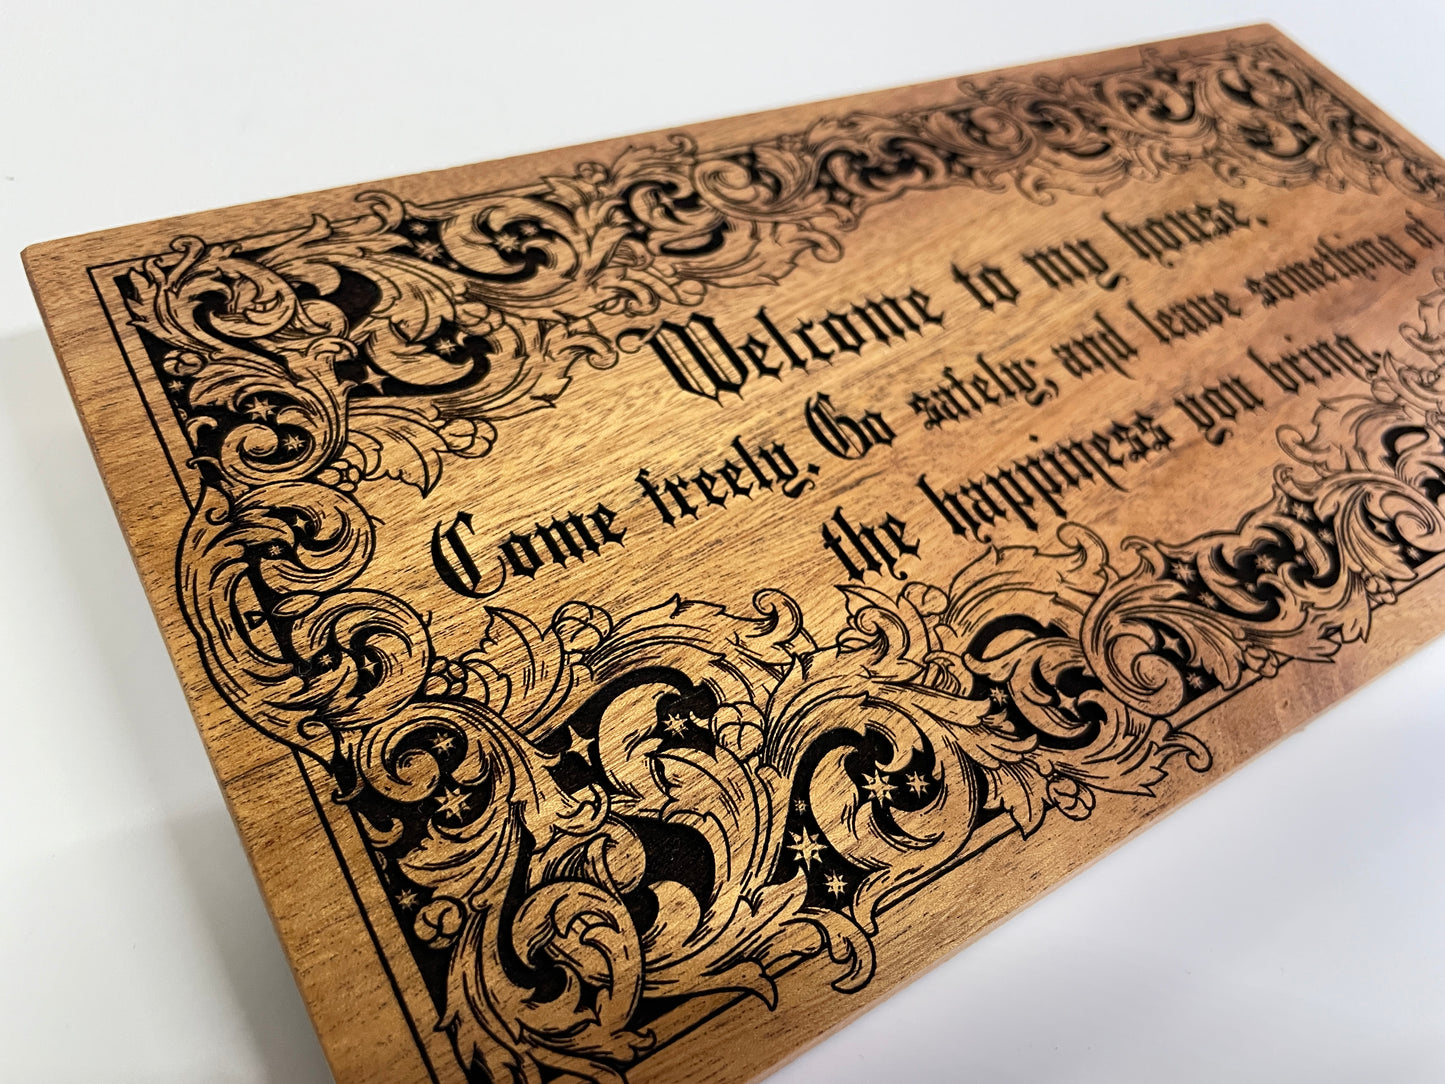 Welcome to my house.
Come freely. Go safely; and leave something of
the happiness you bring.